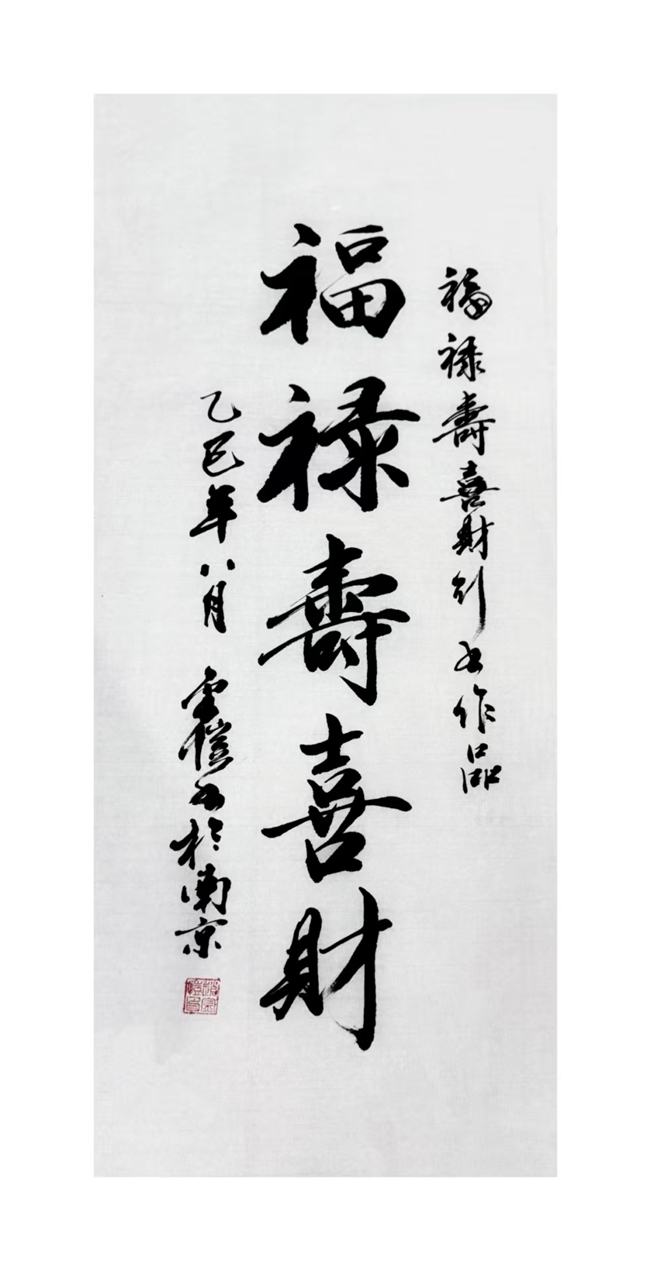 福禄壽喜財行书作品
福禄壽喜財
乙巳年八月 書於南京